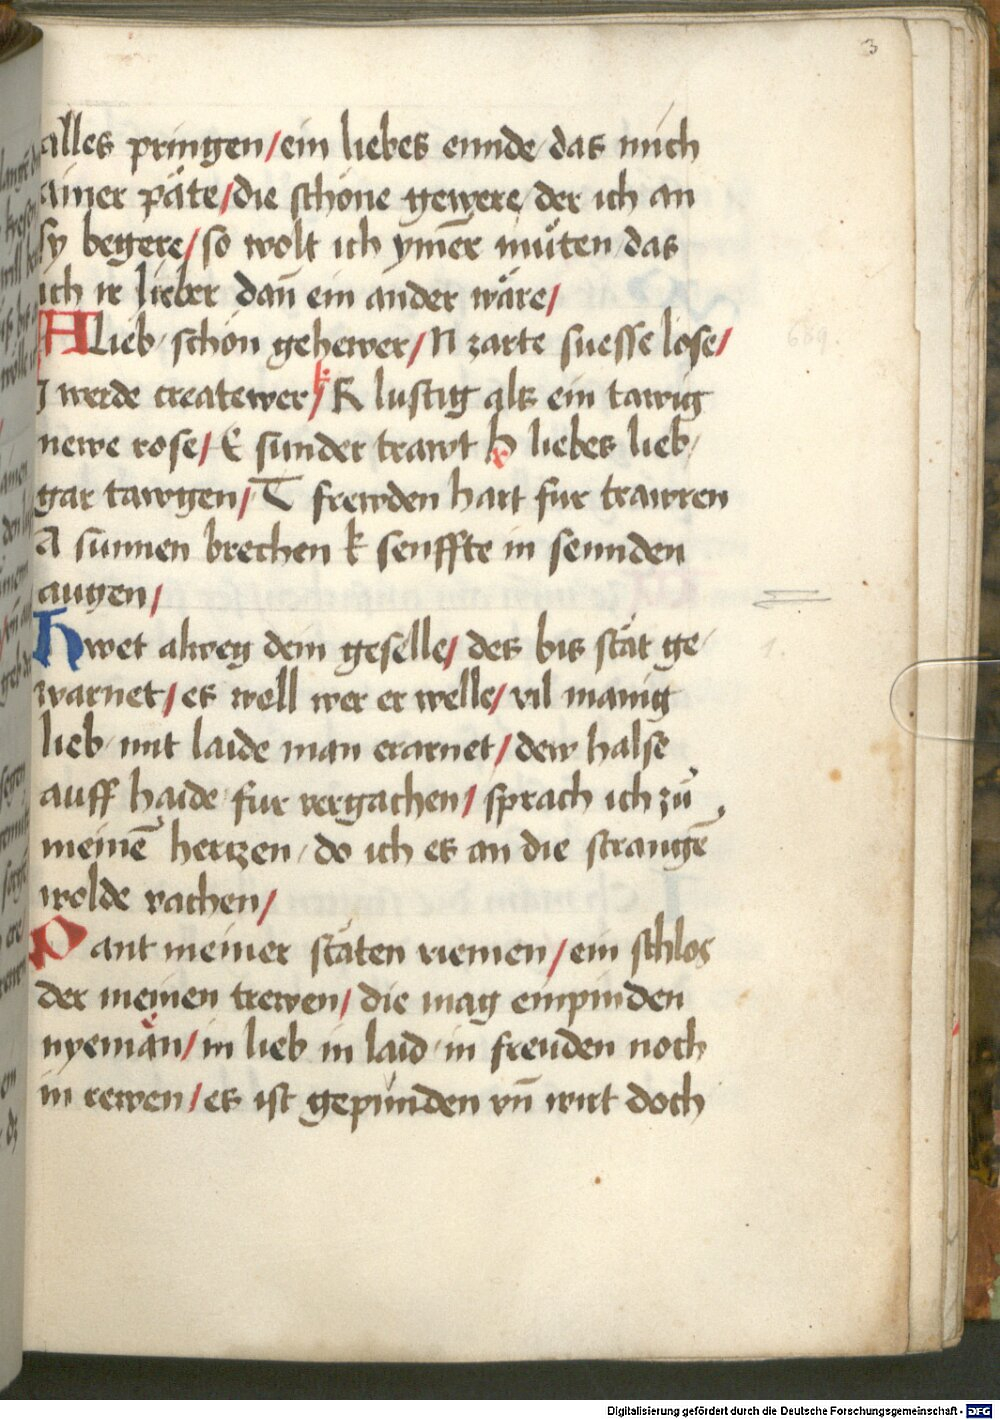 3
alles pringen/ein liebes ennde das mich
ainer päte/die schöne gewere/der ich an
sy begere/so wolt ich ym̄er müten das
ich ir lieber dan̄ ein ander wäre/
A Lieb schön gehewer/N zarte suesse lose/
J werde createwer/k R lustig als ein tawig
newe rose/E sunder trawt H liebes lieb/
gar tawgen/T frewden hart fur trawren
A sunnen brechen k senffte in sennden
augen/
Hwet alweg dein geselle/des bis stät ge/
warnet/es well wer er welle/vil manig
lieb mit laide man erarnet/dew halse
auff haide fur vergachen/sprach ich zů
meinē hertzen/do ich es an die strangē
wolde vachen/
Pant meiner stäten riemen/ein schlos
der meinen trewen/die mag empinden
nyeman/in lieb in laid in freuden noch
in rewen/es ist gepunden vn̄ wirt doch
Digitalisierung gefördert durch die Deutsche Forschungsgemeinschaft - DFG